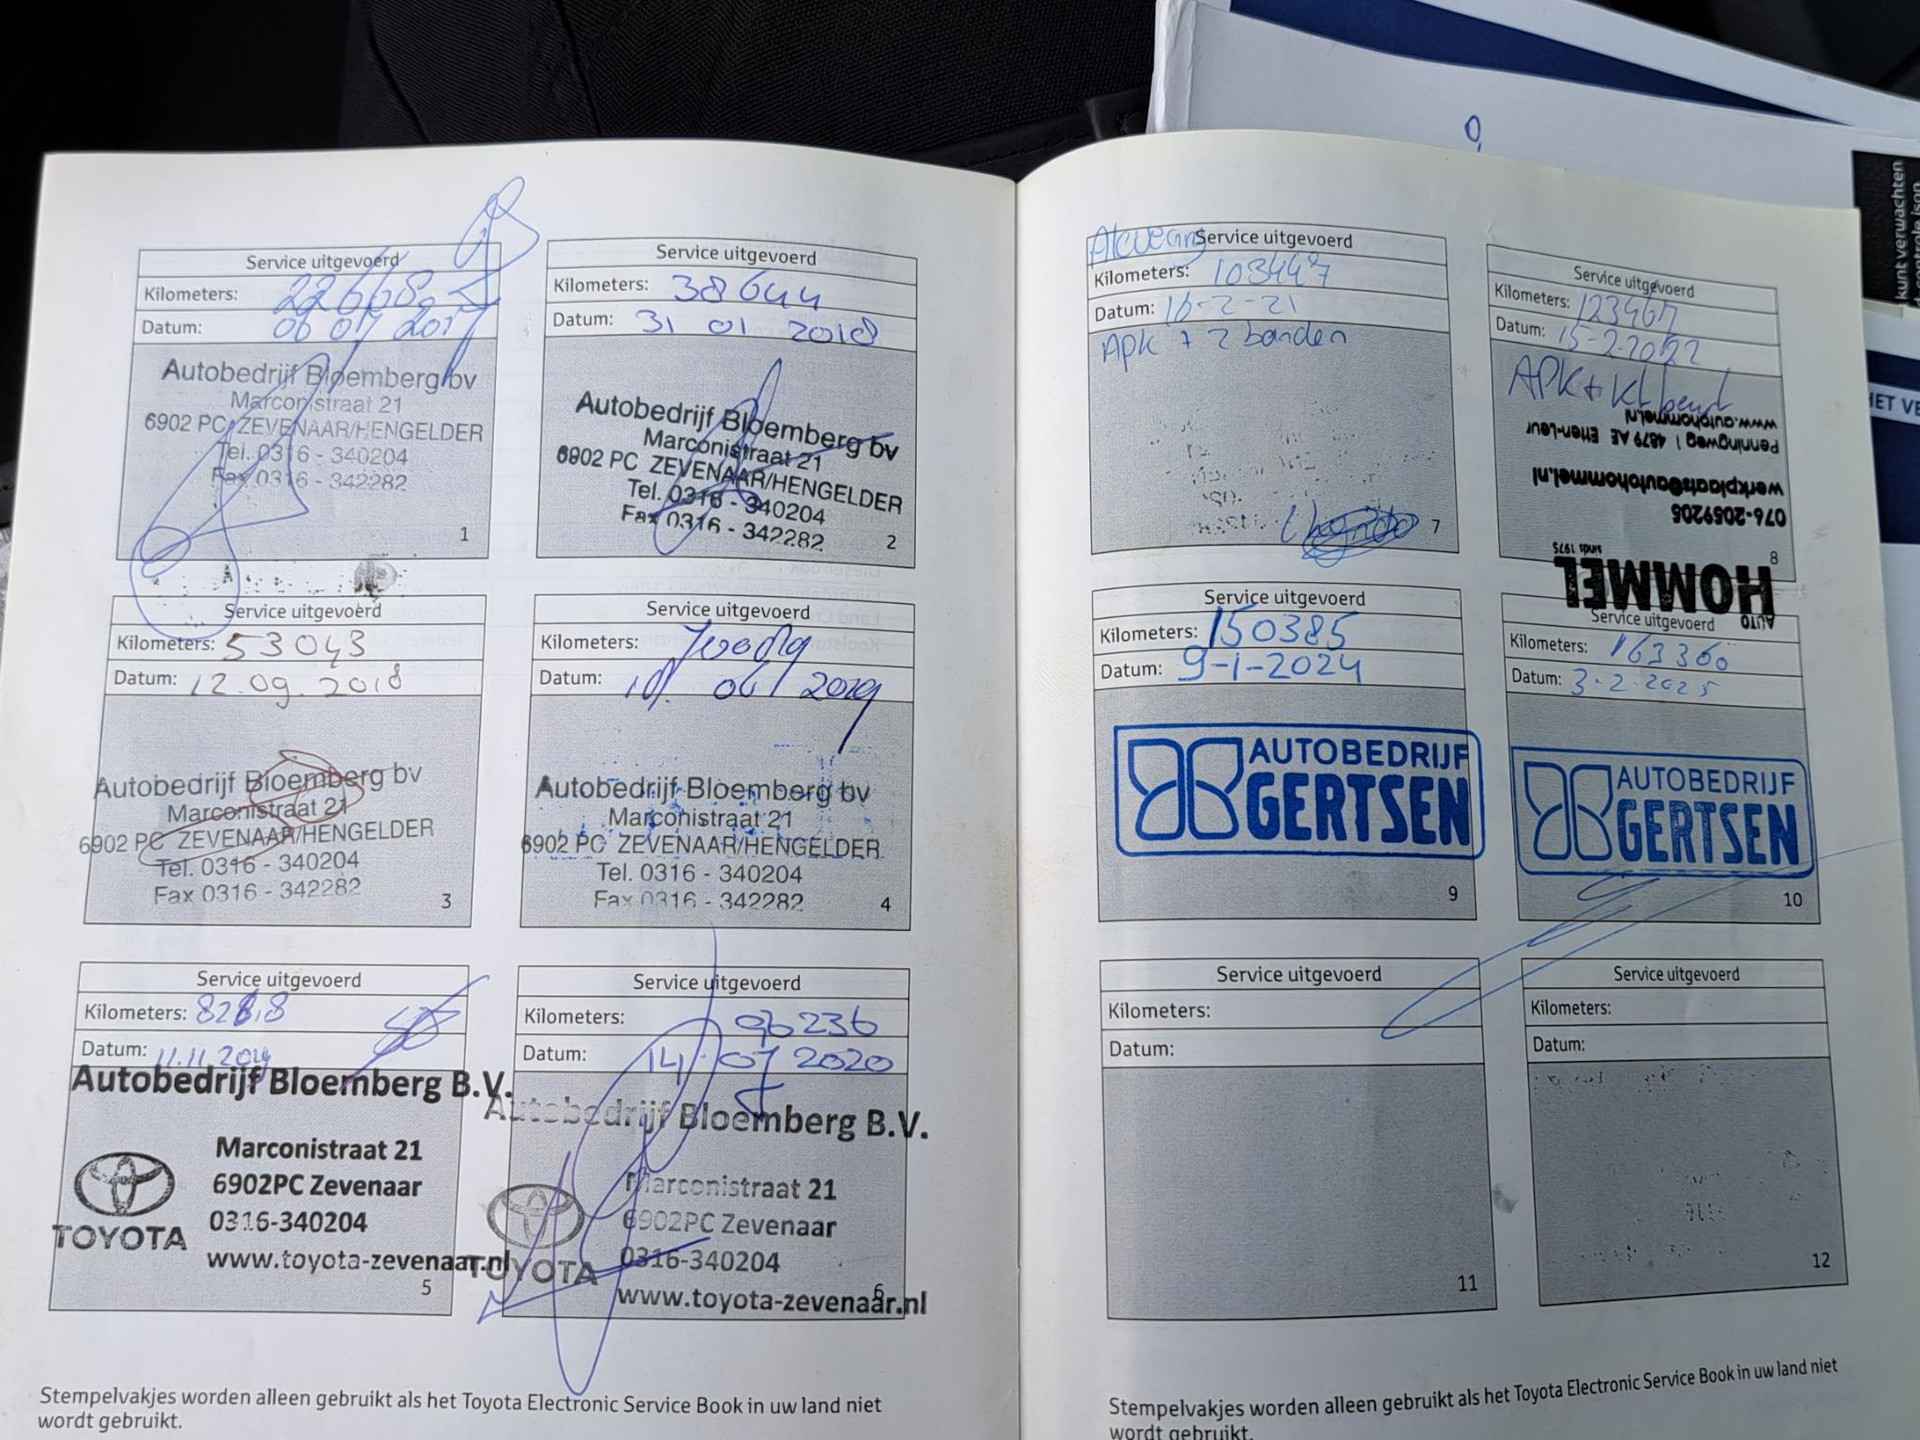 Service uitgevoerd
Kilometers: 22668
Datum: 06 07 2017
Autobedrijf Bloemberg bv
Marconistraat 21
6902 PC ZEVENAAR/HENGELDER
Tel. 0316 - 340204
Fax 0316 - 342282
1
Service uitgevoerd
Kilometers: 38644
Datum: 31 01 2018
Autobedrijf Bloemberg bv
Marconistraat 21
6902 PC ZEVENAAR/HENGELDER
Tel. 0316 - 340204
Fax 0316 - 342282
2
Service uitgevoerd
Kilometers: 53043
Datum: 12.09.2018
Autobedrijf Bloemberg bv
Marconistraat 21
6902 PC ZEVENAAR/HENGELDER
Tel. 0316 - 340204
Fax 0316 - 342282
3
Service uitgevoerd
Kilometers:
Datum: 2019
Autobedrijf Bloemberg bv
Marconistraat 21
6902 PC ZEVENAAR/HENGELDER
Tel. 0316 - 340204
Fax 0316 - 342282
4
Service uitgevoerd
Kilometers:
Datum: 11.11.2019
Autobedrijf Bloemberg B.V.
Marconistraat 21
6902PC Zevenaar
0316-340204
www.toyota-zevenaar.nl
TOYOTA
5
Service uitgevoerd
Kilometers: 96236
Datum: 14 07 2020
Autobedrijf Bloemberg B.V.
Marconistraat 21
6902PC Zevenaar
0316-340204
www.toyota-zevenaar.nl
TOYOTA
6
Stempelvakjes worden alleen gebruikt als het Toyota Electronic Service Book in uw land niet
wordt gebruikt.
Service uitgevoerd
Kilometers: 103447
Datum: 16-2-21
Apk + 2 banden
7
Service uitgevoerd
Kilometers: 123467
Datum: 15-2-2022
APK + kl beurt
AUTO
HOMMEL
sinds 1975
076-2059205
werkplaats@autohommel.nl
Penningweg 1 4879 AE Etten-Leur
www.autohommel.nl
8
Service uitgevoerd
Kilometers: 150385
Datum: 9-1-2024
AUTOBEDRIJF
GERTSEN
9
Service uitgevoerd
Kilometers: 163360
Datum: 3-2-2025
AUTOBEDRIJF
GERTSEN
10
Service uitgevoerd
Kilometers:
Datum:
11
Service uitgevoerd
Kilometers:
Datum:
12
Stempelvakjes worden alleen gebruikt als het Toyota Electronic Service Book in uw land niet
wordt gebruikt.
kunt verwachten
HET VE